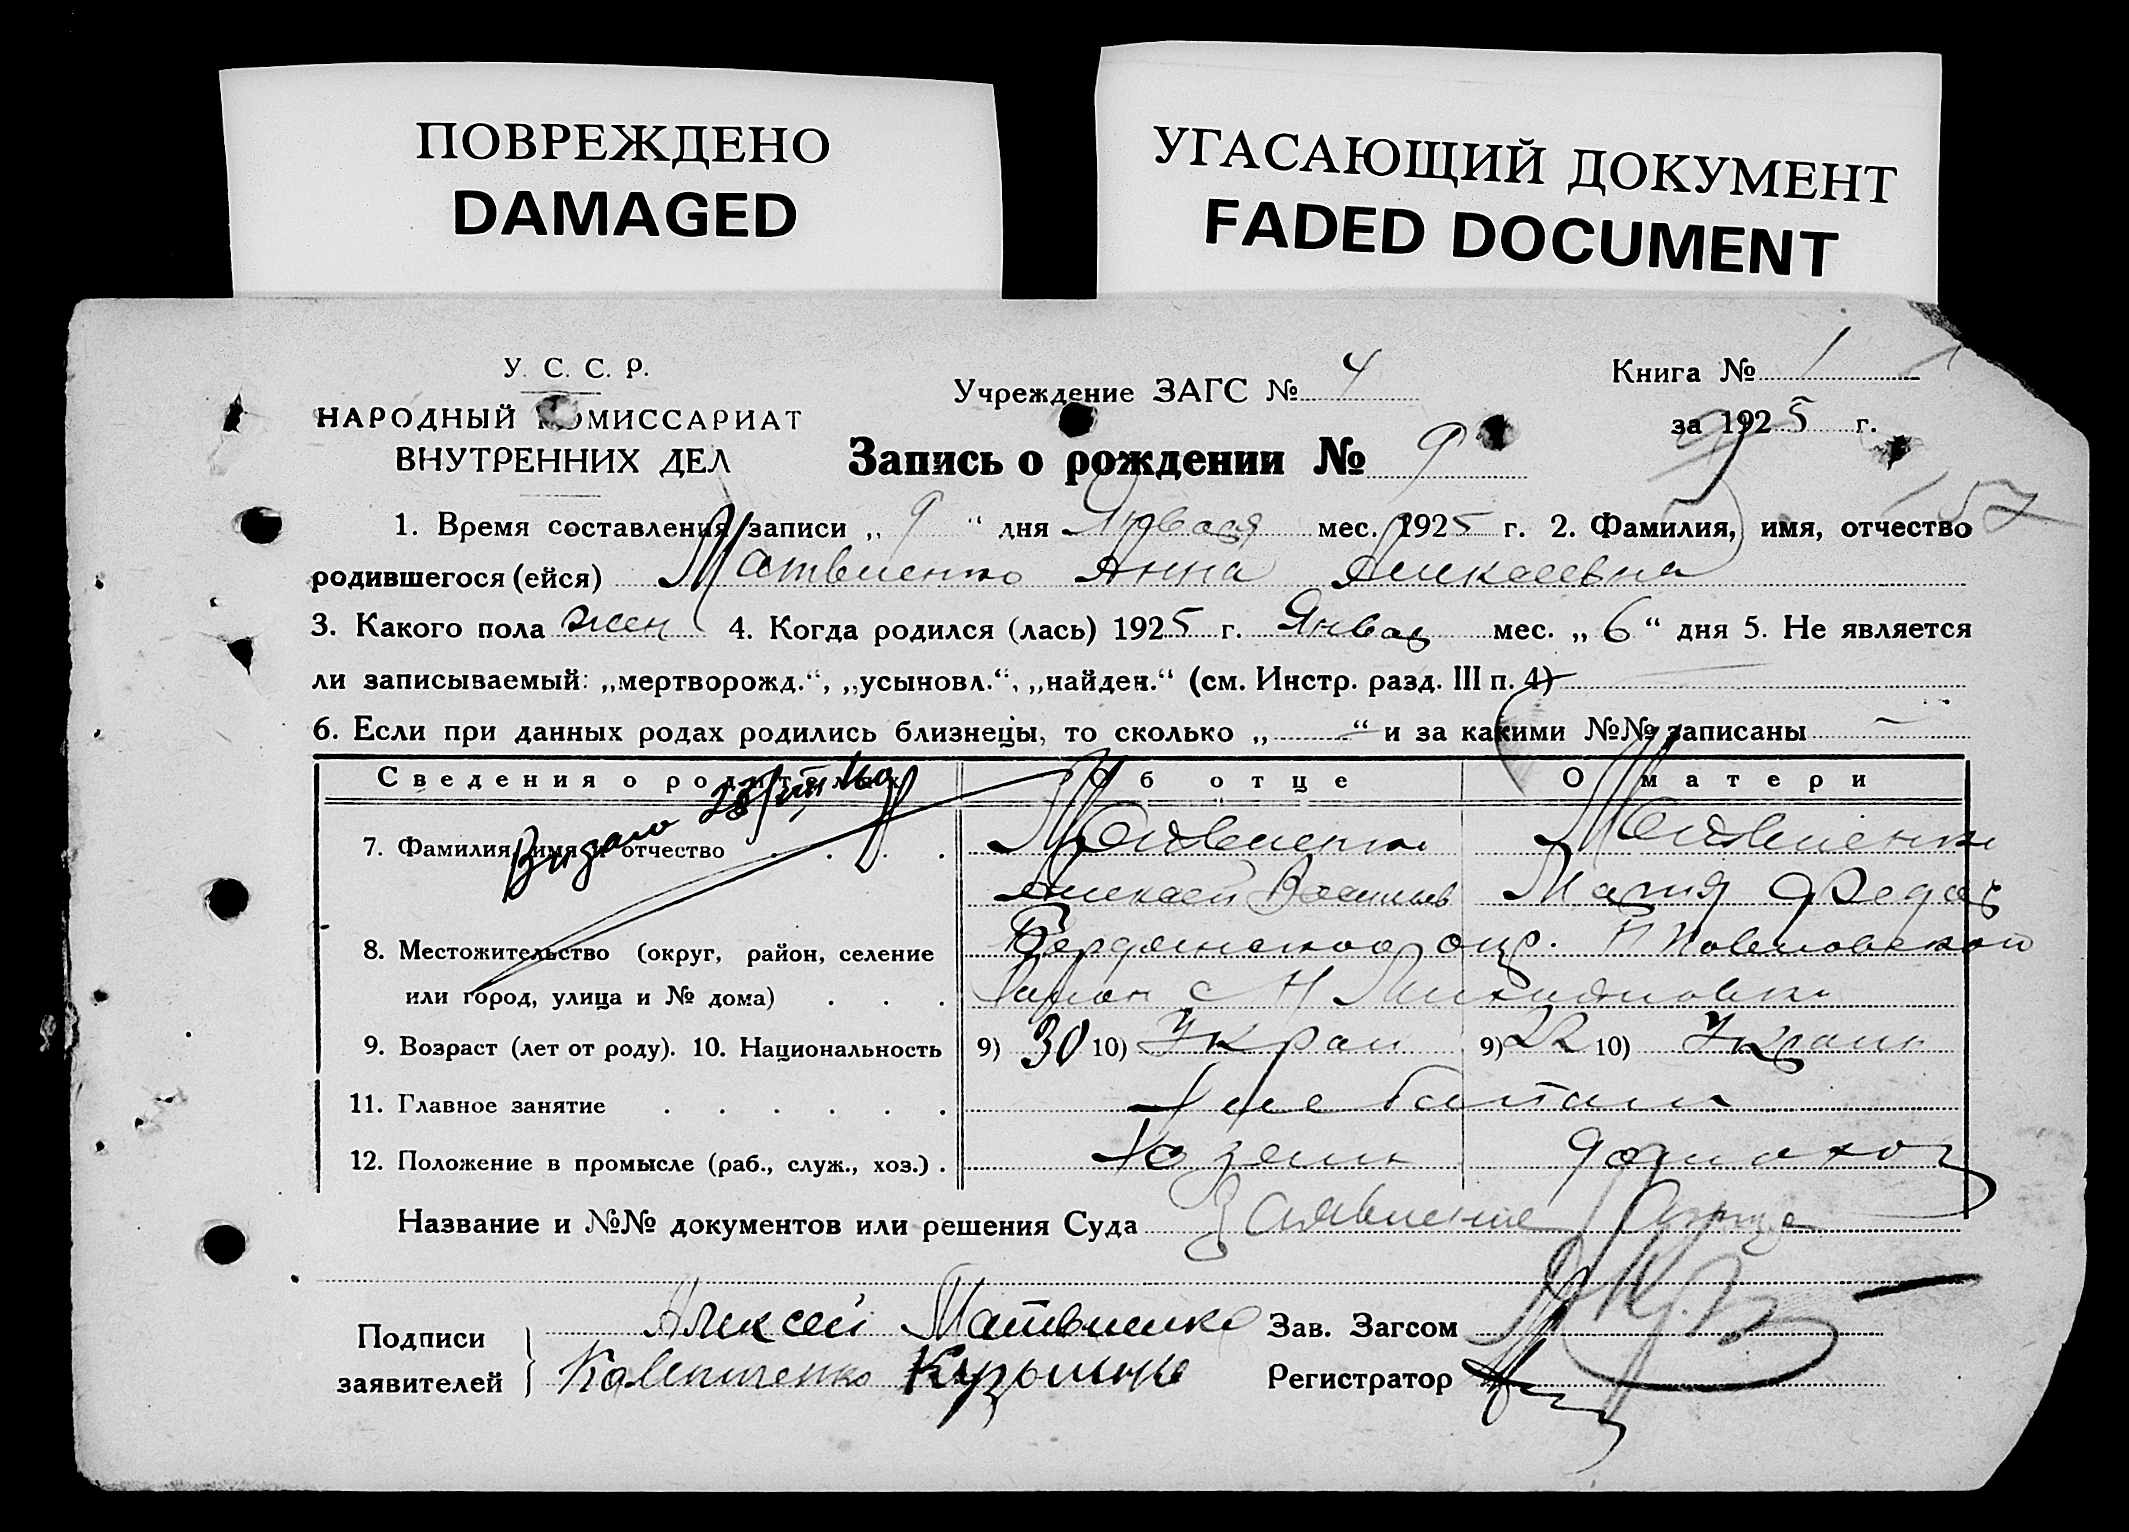 ПОВРЕЖДЕНО
DAMAGED
УГАСАЮЩИЙ ДОКУМЕНТ
FADED DOCUMENT
У. С. С. Р.
НАРОДНЫЙ КОМИССАРИАТ
ВНУТРЕННИХ ДЕЛ
Учреждение ЗАГС № 4
Книга № 1
за 1925 г.
Запись о рождении № 9
157
1. Время составления записи „ 9 “ дня Января мес. 1925 г. 2. Фамилия, имя, отчество
родившегося (ейся) Матвиенко Анна Алексеевна
3. Какого пола жен 4. Когда родился (лась) 1925 г. Январ мес. „ 6 “ дня 5. Не является
ли записываемый: „мертворожд.“, „усыновл.“, „найден.“ (см. Инстр. разд. III п. 4)
6. Если при данных родах родились близнецы, то сколько „ — “ и за какими №№ записаны —
Сведения о родителях Об отце О матери
7. Фамилия, имя и отчество Матвиенко Матвиенко
Алексей Васильев Мария Федор
8. Местожительство (округ, район, селение Бердянского окр.
или город, улица и № дома) район с Н
9. Возраст (лет от роду). 10. Национальность 9) 30 10) Украи 9) 22 10) Украин
11. Главное занятие Хлебопаш
12. Положение в промысле (раб., служ., хоз.) Хозяин домохоз
Название и №№ документов или решения Суда Заявление отца
Подписи заявителей Алексей Матвиенко Зав. Загсом
Кузьменко Регистратор